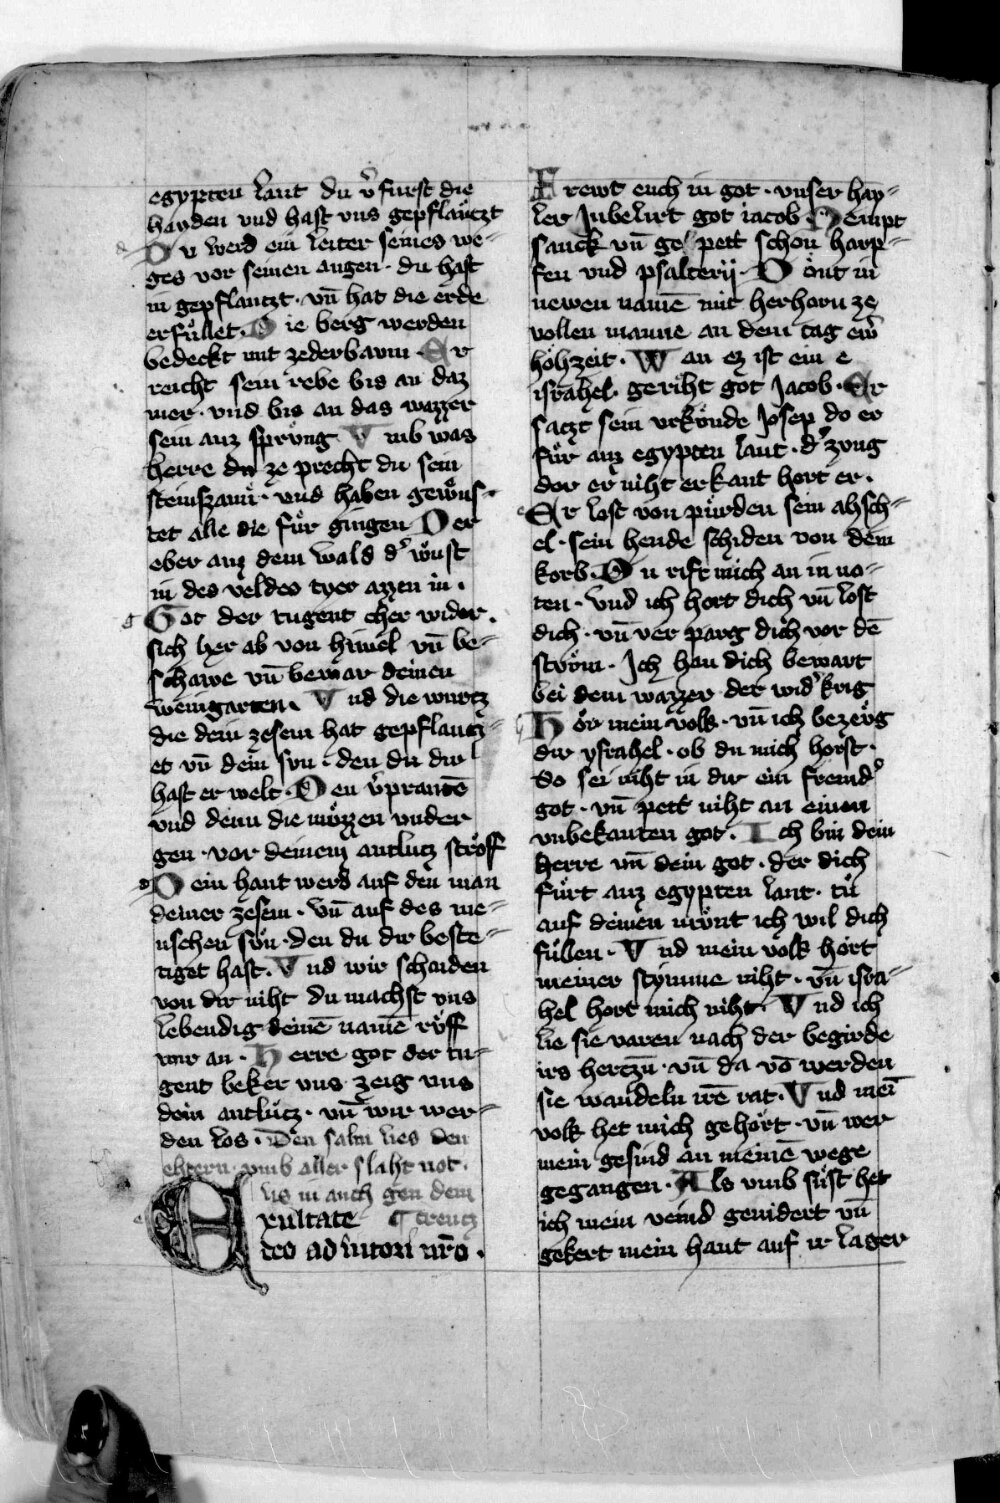 egypten lant du v̉furst die
hayden vnd hast vns gepflaͤutzt
Du werd ein leiter seines we⸗
ges vor seinen augen · du hast
in gepflantzt · vn̄ hat die erde
erfuͤllet · Die berg werden
bedeckt mit zederbavm · Er
reicht sein rebe bis an daz
mer · vnd bis an das wazzer
sein auz sproͤng Vmb was
herre du ze precht du sein
steinszavn · vnd haben gewuͤns⸗
tet alle die fuͤr gingen Der
eber auz dem wald d̉ wuͤst
in des veldes tyer azzen in ·
Got der tugent cher wider ·
sich her ab von himel vn̄ be⸗
schawe vn̄ bewar deinen
weingarten · Vnd die wurtz
die dein zesem hat gepflantz⸗
et vn̄ dein svn · den du dir
hast erwelt · Den v̉prantē
vnd denn die muͤzzen vnder
gen · vor deinem antlutz stroͤff
Dein hant werd auf den man
deiner zesem · Vn̄ auf des me⸗
nschen svn · den du dir beste⸗
tiget hast · Vnd wir schaiden
von dir niht du machst vns
lebendig deinē namē rvͤff
wir an · Herre got der tu⸗
gent beker vns zeig vns
dein antluͤtz · vn̄ wir wer⸗
den los · Den salm lies den
ehtern vmb aller slaht not ·
lis in auch gen dem
Exultate ¶ creutz
deo adiutori nr̄o ·
Frewt euch in got · vnser hay⸗
ler Jubelirt got iacob Nempt
sanck vn̄ ge pett schon harp⸗
fen vnd psalterij · Doͤnt in
newen namē mit herhorn ze
vollen manne an dem tag ew̉
hoͤhzeit · Wan ez ist ein e
israhel · geriht got Jacob · Er
satzt sein vrkoͤnde Josep do er
fuͤr auz egypten lant · d̉ zvng
der er niht erkant hort er ·
Er lost von puͤrden sein ahsch⸗
el · sein hende schiden von dem
korb · Du rift mich an in no⸗
ten · vnd ich hort dich vn̄ lost
dich · vn̄ ver parg dich vor dē
stroͤm · Jch han dich bewart
bei dem wazzer der wid̉ krig
Hoͤr mein volk · vn̄ ich bezevͤg
dir ysrahel · ob du mich horst ·
So sei niht in dir ein fremd̉
got · vn̄ pett niht an einen
vnbekanten got · Ich bin dein
herre vn̄ dein got · der dich
fuͤrt auz egypten lant · tuͤ
auf deinen mvͤnt ich wil dich
fuͤllen · Vnd mein volk hort
meiner stymme niht · vn̄ isra⸗
hel hort mich niht · Vnd ich
lie sie varen nach der begirde
irs hertzn̄ · vn̄ da vō werden
sie wandeln irē rat · Vnd mei̅
volk het mich gehoͤrt · vn̄ wer
mein gesind an meinē wege
gegangen · Als vmb suͤst het
ich mein veind genidert vn̄
gekert mein hant auf ir lager